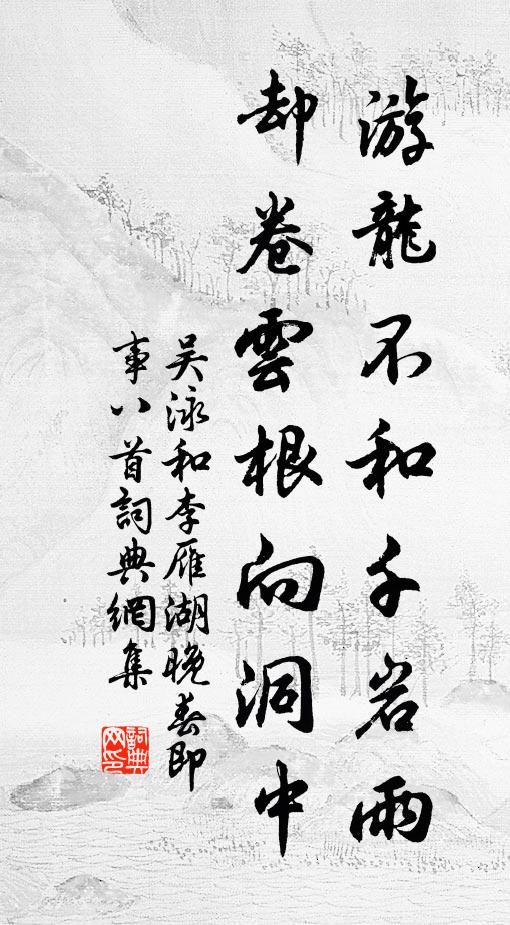 游龍不和千岩雨
却卷雲根向洞中
吴泳和李雁湖晚春即
事八首詞典網集
詞典网印